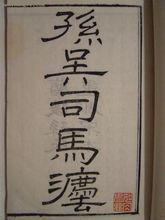 孫吳司馬灋